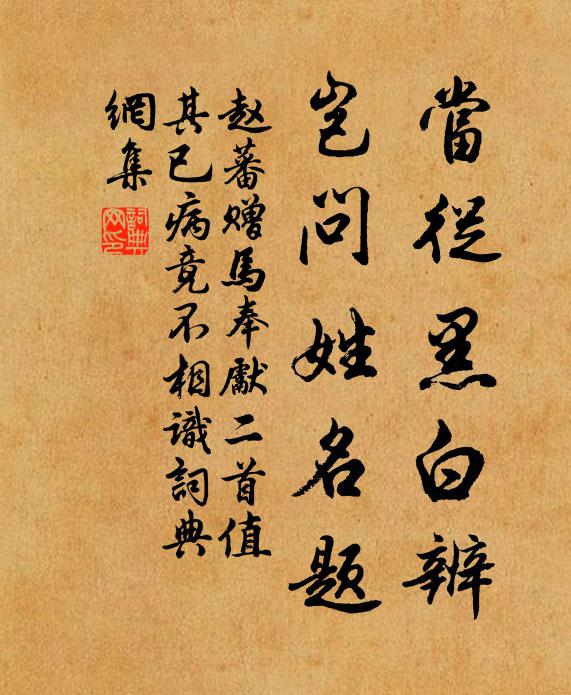 當從黑白辨
豈问姓名題
赵蕃赠馬奉獻二首值
其已病竟不相識詞典
網集
詞典網印